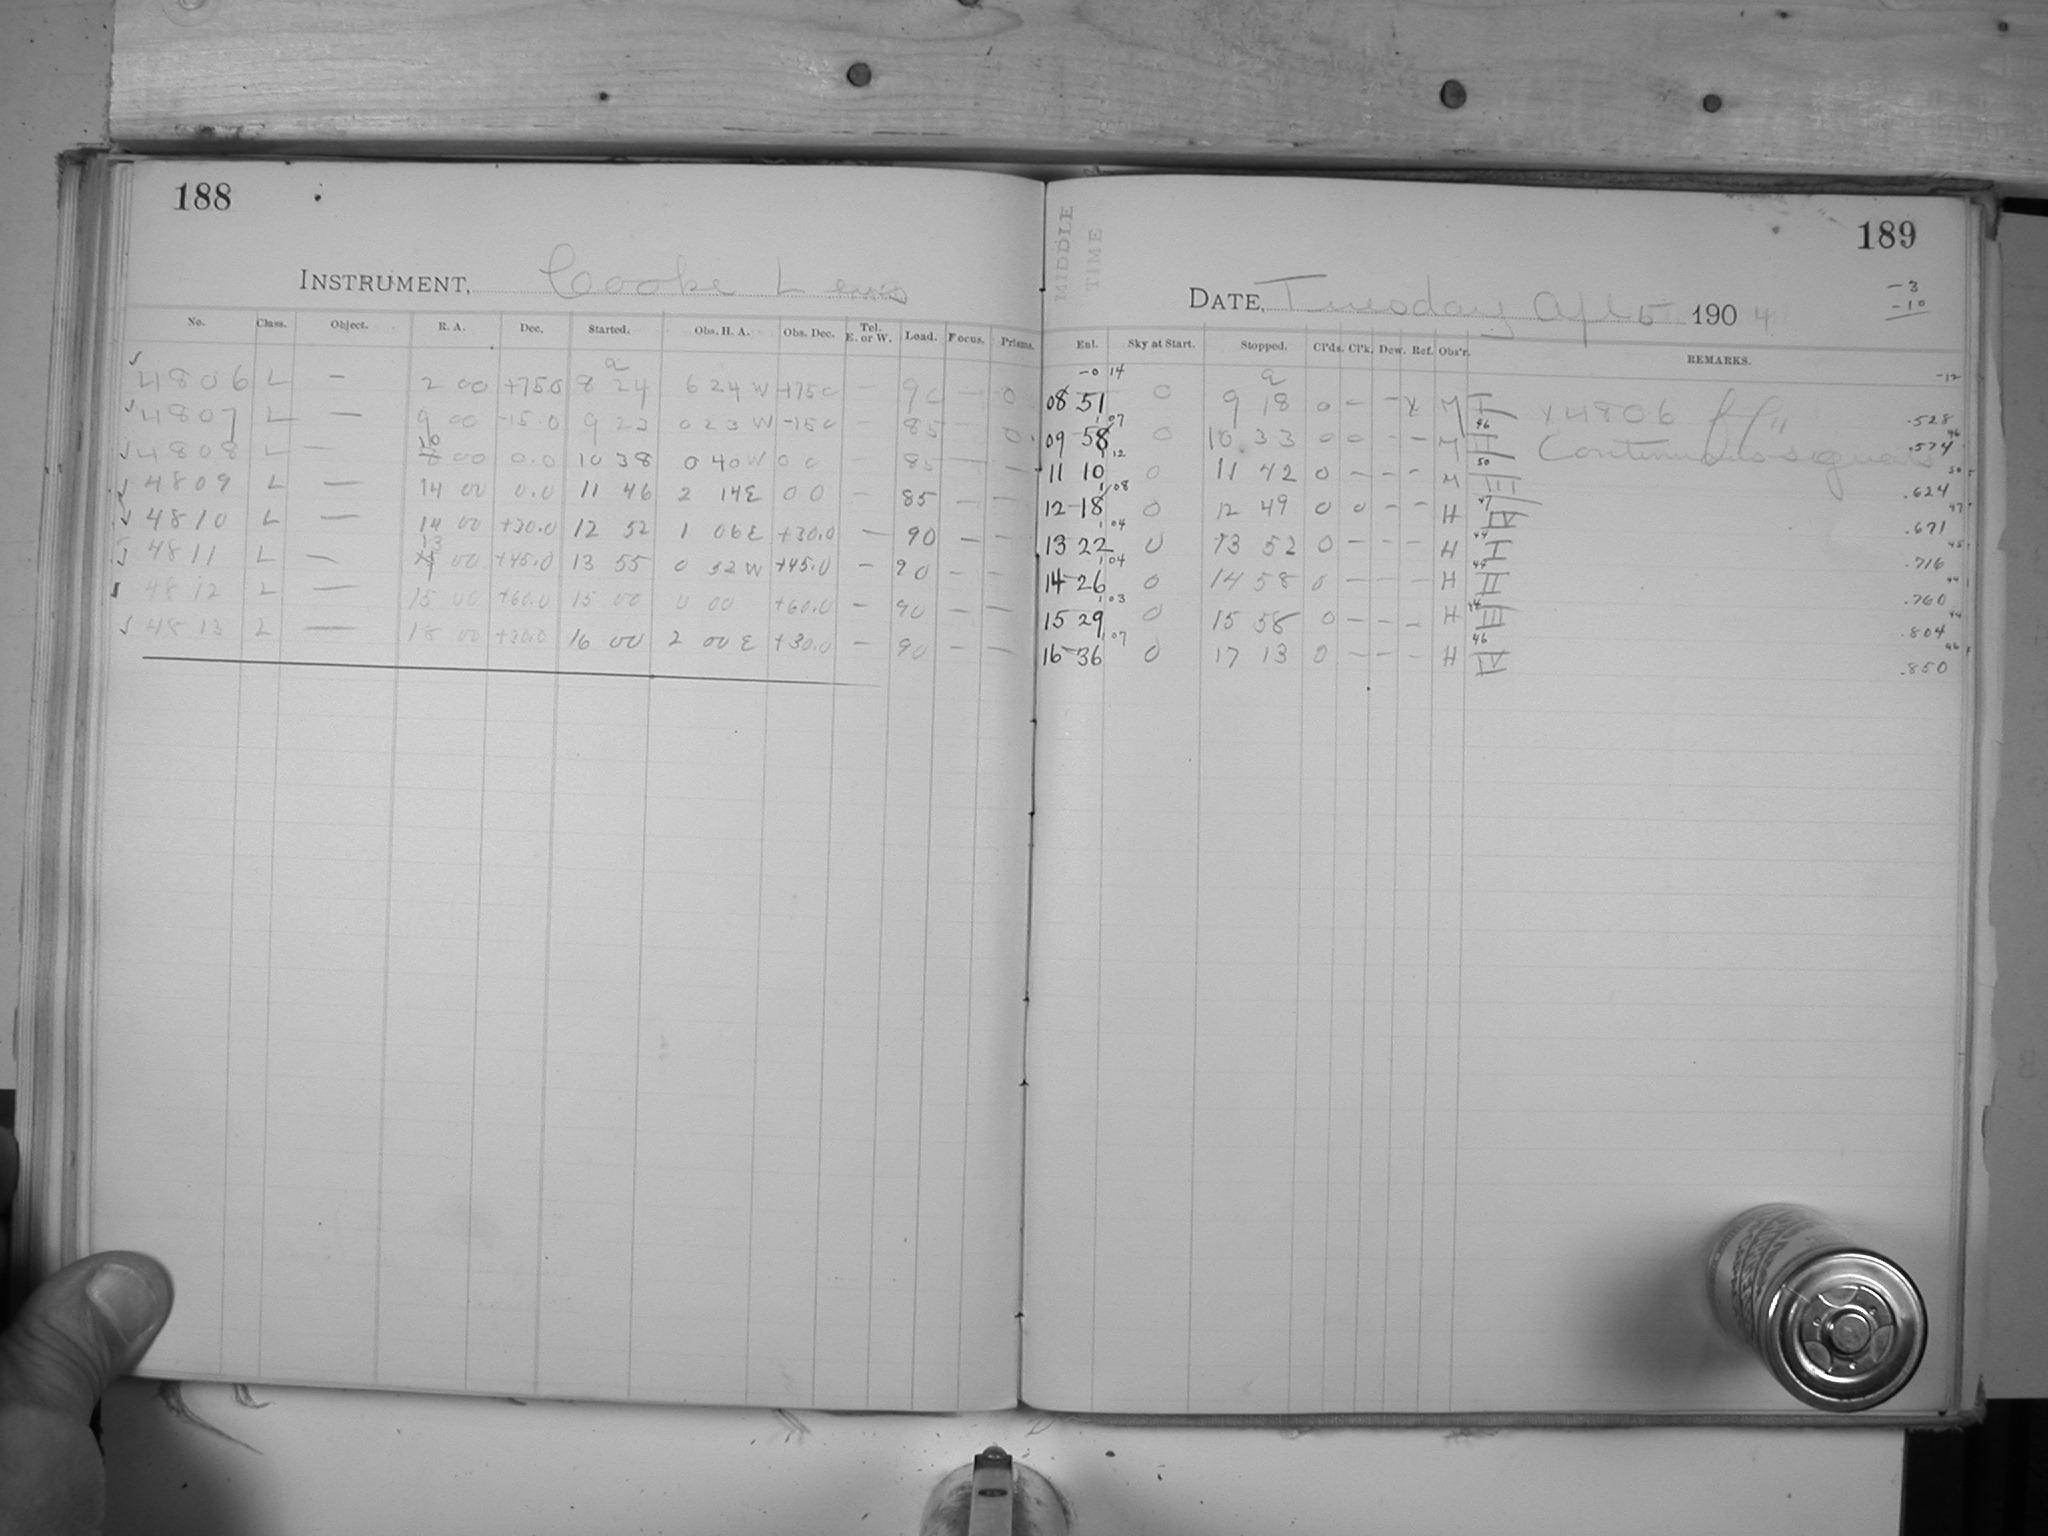 188
INSTRUMENT, Cooke Lens
No. Class. Object. R. A. Dec. Started. Obs. H. A. Obs. Dec. Tel. E. or W. Load. Focus. Prisms.
4806 L — 2 00 +75.0 8 24 6 24 W +75.0 — 90 — 0
4807 L — 9 00 -15.0 9 23 0 23 W -15.0 — 85 — 0
4808 L — 10 00 0.0 10 38 0 40 W 0 0 — 85 — —
4809 L — 14 00 0.0 11 46 2 14 E 0 0 — 85 — —
4810 L — 14 00 +30.0 12 52 1 06 E +30.0 — 90 — —
4811 L — 13 00 +45.0 13 55 0 52 W +45.0 — 90 — —
4812 L — 15 00 +60.0 15 00 0 00 +60.0 — 90 — —
4813 L — 18 00 +30.0 16 00 2 00 E +30.0 — 90 — —
MIDDLE TIME
189
DATE, Tuesday Apl 5 1904
-3
-10
Ent. Sky at Start. Stopped. Cl'ds. Cl'k. Dew. Ref. Obs'r. REMARKS.
-0 14 -12
08 51 0 9 18 0 — — x M I x4806 .528
1 07 46
09 58 0 10 33 0 0 — — M II Continuous signals .574
1 12 50
11 10 0 11 42 0 — — — M III .624
1 08 47
12 18 0 12 49 0 0 — — H IV .671
1 04 44
13 22 0 13 52 0 — — — H I .716
1 04 44
14 26 0 14 58 0 — — — H II .760
1 03 44
15 29 0 15 58 0 — — — H III .804
1 07 46
16 36 0 17 13 0 — — — H IV .850